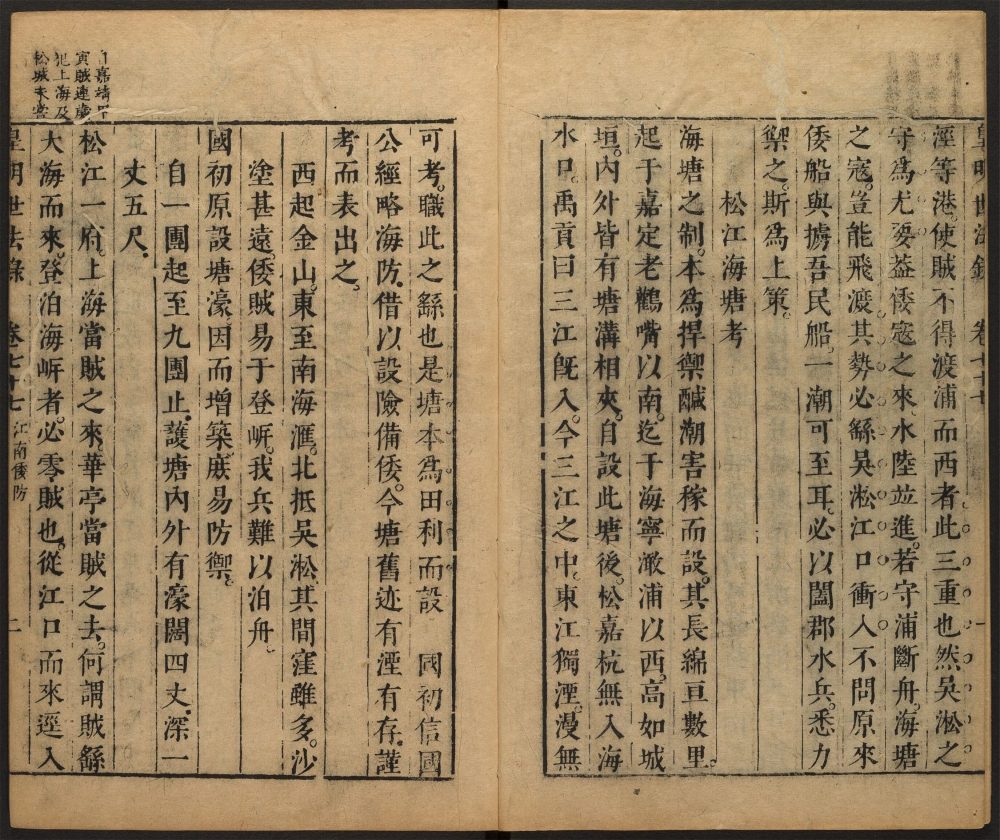 皇明世法錄 卷七十七 一
涇等港使賊不得渡浦而西者此三重也然吳淞之
守爲尤要葢倭寇之來水陸並進若守浦斷舟海塘
之寇豈能飛渡其勢必繇吳淞江口衝入不問原來
倭船與擄吾民船一潮可至耳必以闔郡水兵悉力
禦之斯爲上策
松江海塘考
海塘之制本爲捍禦鹹潮害稼而設其長綿亘數里
起于嘉定老鸛嘴以南迄于海寧澉浦以西高如城
垣內外皆有塘溝相夾自設此塘後松嘉杭無入海
水口禹貢曰三江旣入今三江之中東江獨湮漫無
可考職此之繇也是塘本爲田利而設 國初信國
公經略海防借以設險備倭今塘舊迹有湮有存謹
考而表出之
西起金山東至南海滙北抵吳淞其間窪雖多沙
塗甚遠倭賊易于登岍我兵難以泊舟
國初原設塘濠因而增築庻易防禦
自一團起至九團止護塘內外有濠闊四丈深一
丈五尺
松江一府上海當賊之來華亭當賊之去何謂賊繇
大海而來登泊海岍者必零賊也從江口而來逕入
嘉靖甲
寅賊連䑸
犯上海及
松城未嘗
皇明世法錄 卷七十七 江南倭防 二